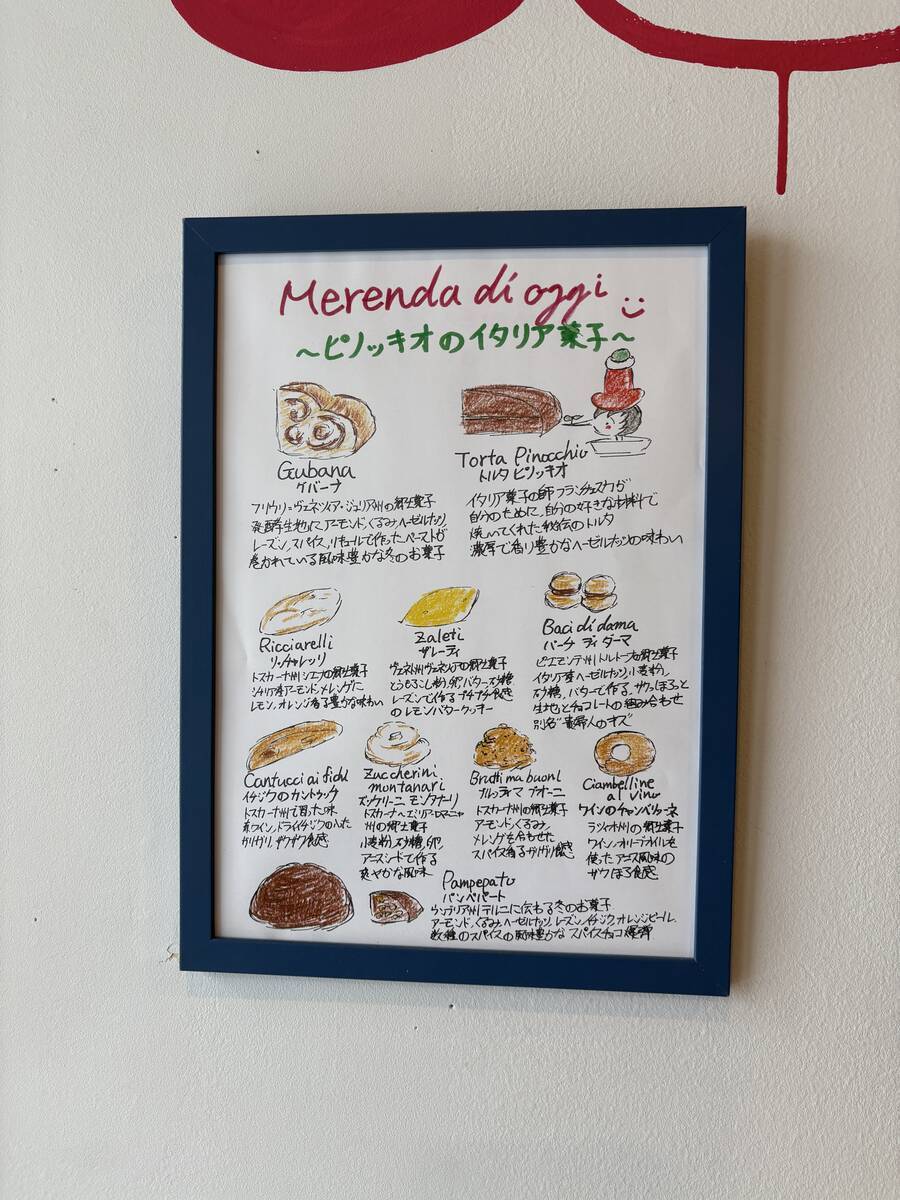 Merenda di oggi
～ピノッキオのイタリア菓子～
Gubana
グバーナ
フリウリ=ヴェネツィア・ジューリア州の郷土菓子
発酵生地に、アーモンド、くるみ、ヘーゼルナッツ、
レーズン、スパイス、リキュールで作ったペーストが
巻かれている風味豊かな冬のお菓子
Torta Pinocchio
トルタ ピノッキオ
イタリア菓子の師フランチェスカが
自分のために、自分の好きな材料で
焼いてくれた秘伝のトルタ
濃厚で香り豊かなヘーゼルナッツの味わい
Ricciarelli
リッチャレッリ
トスカーナ州シエナの郷土菓子
シチリア産アーモンド、メレンゲに
レモン、オレンジ香る豊かな味わい
Zaleti
ザレーティ
ヴェネト州ヴェネツィアの郷土菓子
とうもろこし粉、卵、バター、砂糖
レーズンで作るプチプチ食感
のレモンバタークッキー
Baci di dama
バーチ ディ ダーマ
ピエモンテ州トルトーナの郷土菓子
イタリア産ヘーゼルナッツ、小麦粉、
砂糖、バターで作る、サクッほろっと
生地とチョコレートの組み合わせ
別名"貴婦人のキス"
Cantucci ai fichi
イチジクのカントゥッチ
トスカーナ州で習った味
赤ワイン、ドライイチジクの入った
カリカリ、ザクザク食感
Zuccherini
montanari
ズッケリーニ モンタナーリ
トスカーナ～エミリア・ロマーニャ
州の郷土菓子
小麦粉、砂糖、卵、
アニスシードで作る
爽やかな風味
Brutti ma buoni
ブルッティ マ ブオーニ
トスカーナ州の郷土菓子
アーモンド、くるみ、
メレンゲを合わせた
スパイス香るカリカリ食感
Ciambelline
al vino
ワインのチャンベリーネ
ラツィオ州の郷土菓子
ワイン、オリーブオイルを
使った アニス風味の
サクほろ食感
Pampepato
パンペパート
ウンブリア州テルニに伝わる冬のお菓子
アーモンド、くるみ、ヘーゼルナッツ、レーズン、イチジク、オレンジピール、
数種のスパイスの風味豊かな スパイスチョコ爆弾